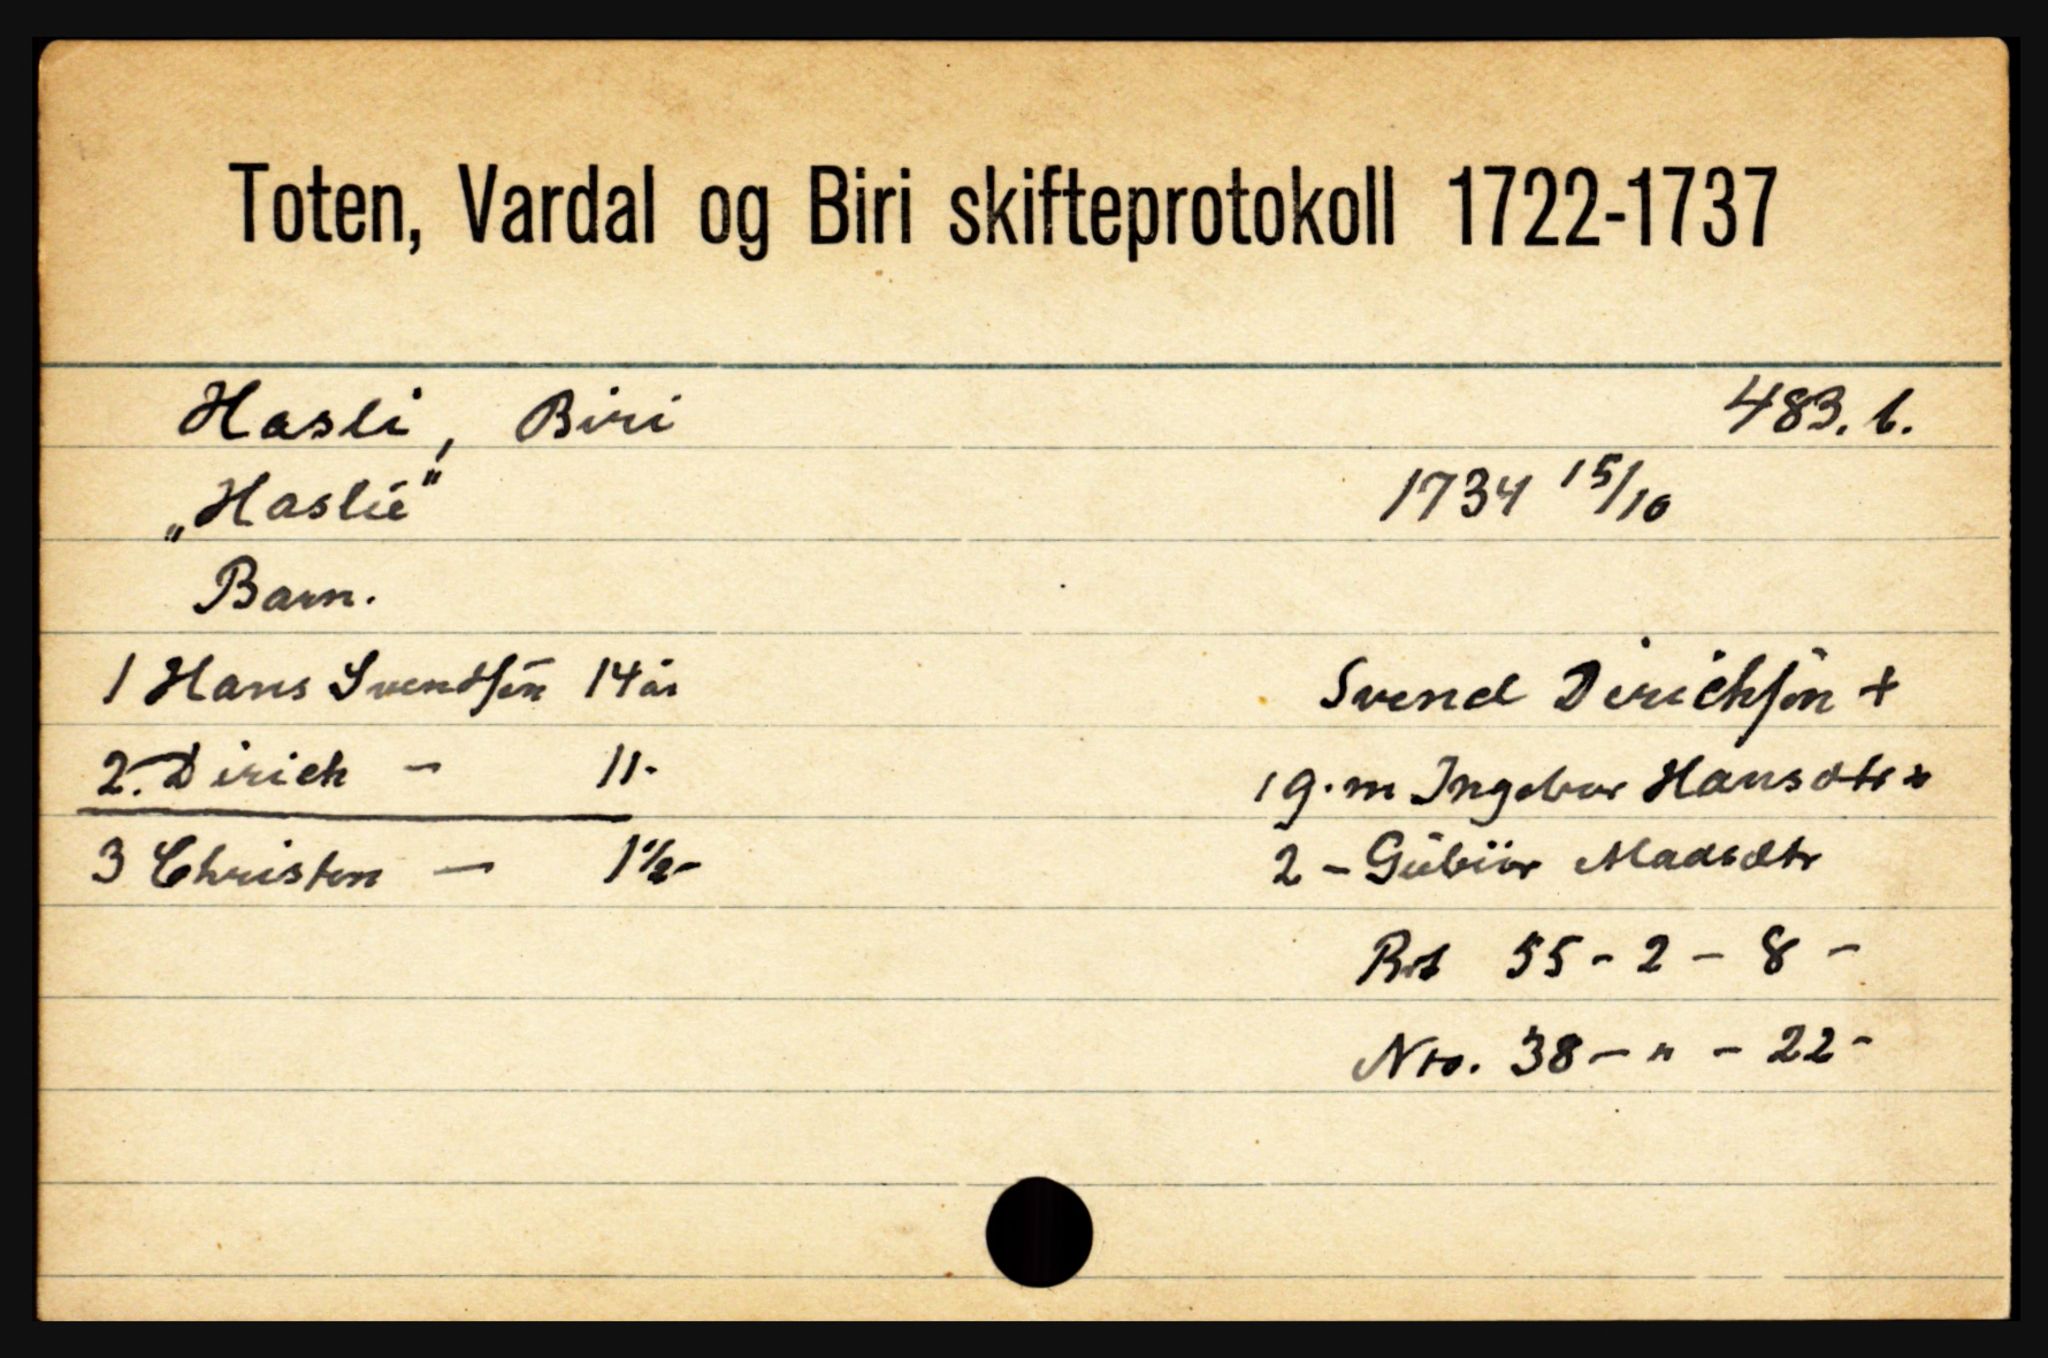 Toten, Vardal og Biri skifteprotokoll 1722-1737
Hasli, Biri 483. b.
„Haslie" 1734 15/10
Barn.
1 Hans Svendsøn 14 år Svend Dirichsøn +
2. Dirich - 11- 1 g. m Ingebor Hansdtr +
3 Christen - 1 1/2- 2 - Gubiør Madsdtr
Brt 55 - 2 - 8 -
Nto. 38 - " - 22 -